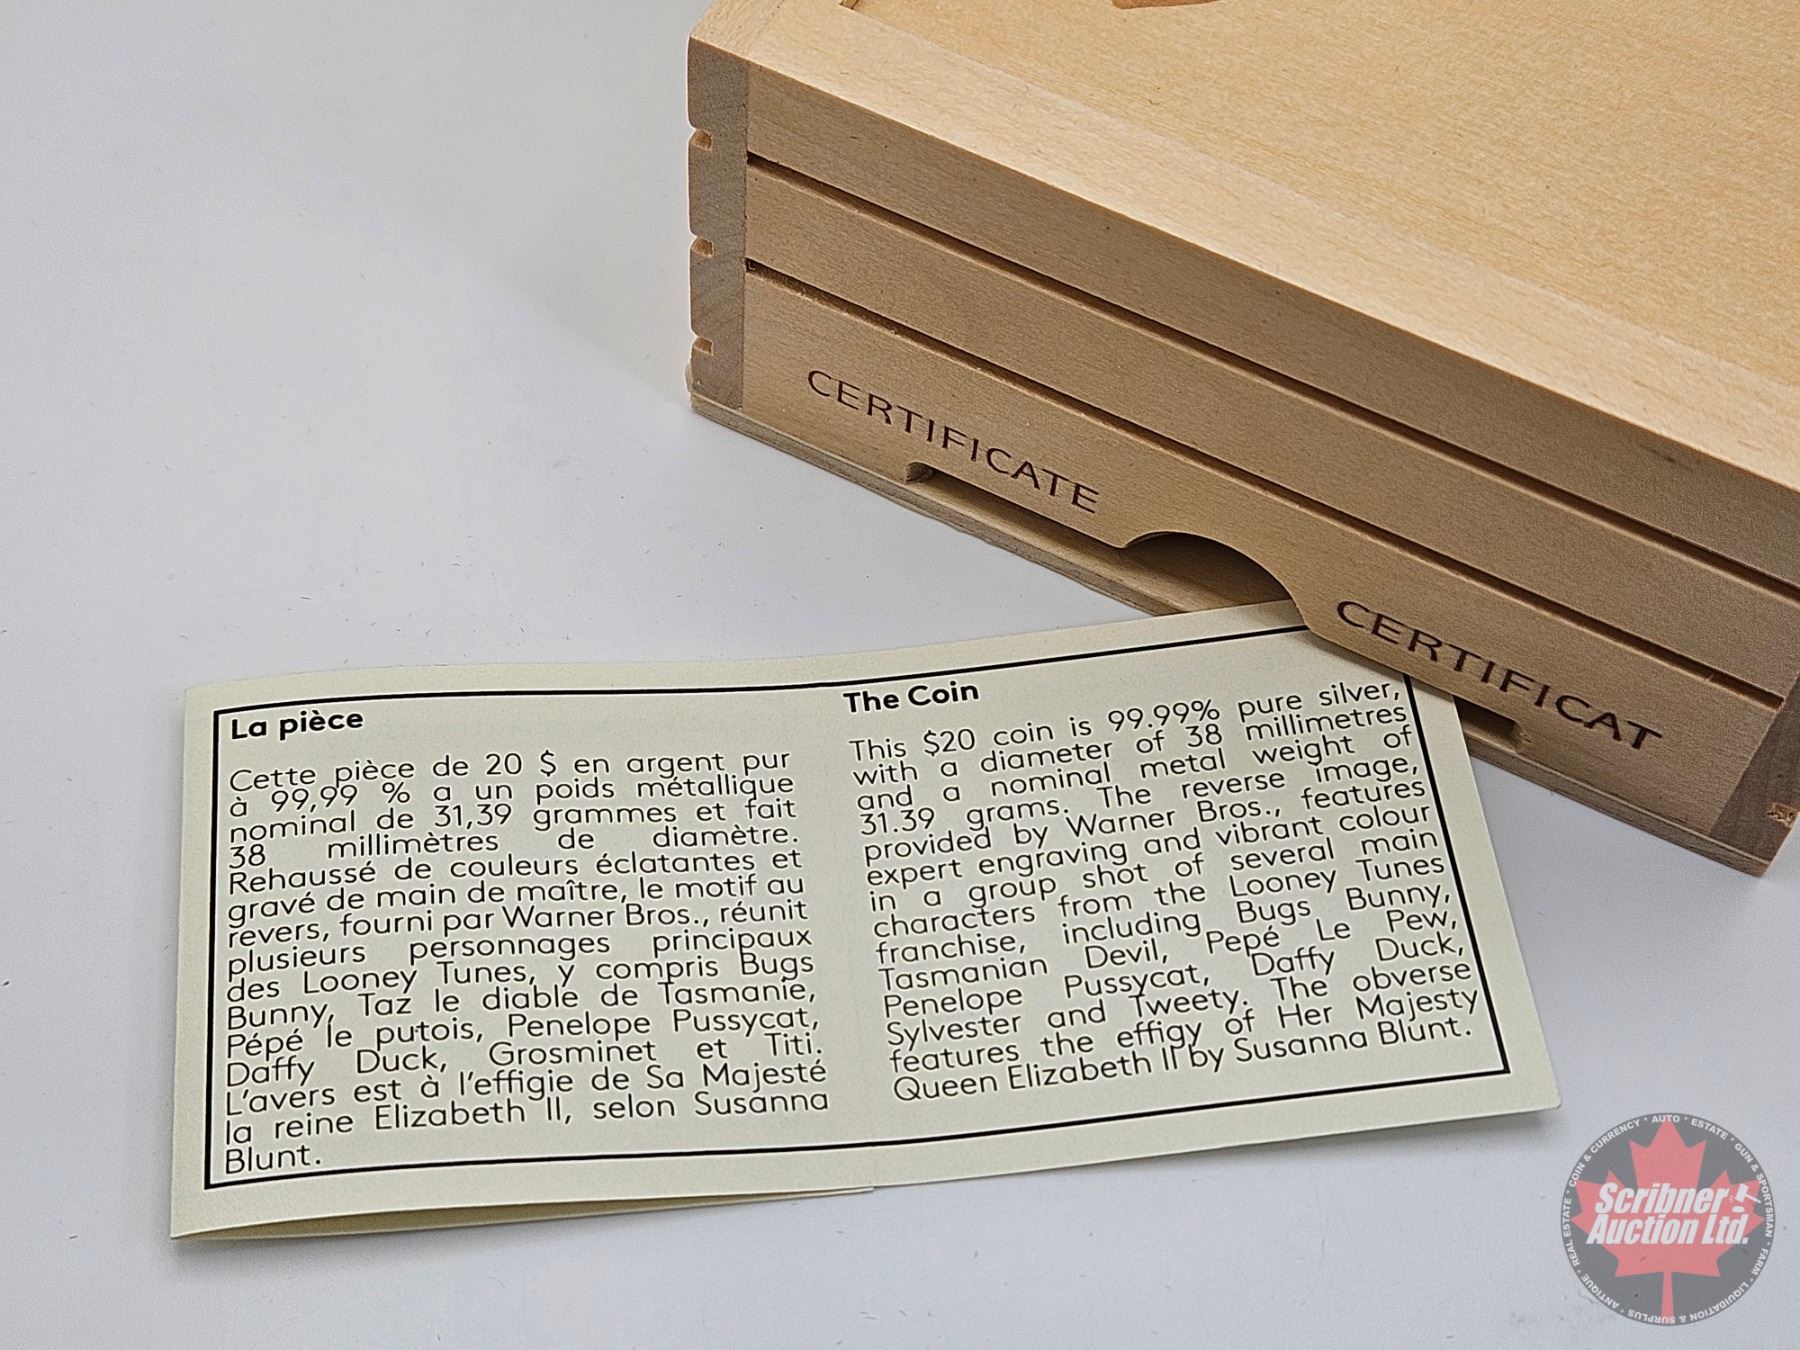 CERTIFICATE
CERTIFICAT
La pièce
Cette pièce de 20 $ en argent pur
à 99,99 % a un poids métallique
nominal de 31,39 grammes et fait
38 millimètres de diamètre.
Rehaussé de couleurs éclatantes et
gravé de main de maître, le motif au
revers, fourni par Warner Bros., réunit
plusieurs personnages principaux
des Looney Tunes, y compris Bugs
Bunny, Taz le diable de Tasmanie,
Pépé le putois, Penelope Pussycat,
Daffy Duck, Grosminet et Titi.
L'avers est à l'effigie de Sa Majesté
la reine Elizabeth II, selon Susanna
Blunt.
The Coin
This $20 coin is 99.99% pure silver,
with a diameter of 38 millimetres
and a nominal metal weight of
31.39 grams. The reverse image,
provided by Warner Bros., features
expert engraving and vibrant colour
in a group shot of several main
characters from the Looney Tunes
franchise, including Bugs Bunny,
Tasmanian Devil, Pepé Le Pew,
Penelope Pussycat, Daffy Duck,
Sylvester and Tweety. The obverse
features the effigy of Her Majesty
Queen Elizabeth II by Susanna Blunt.
Scribner
Auction Ltd.
REAL ESTATE • COIN & CURRENCY • AUTO • ESTATE • GUN & SPORTSMAN • FARM • LIQUIDATION & SURPLUS • ANTIQUE •